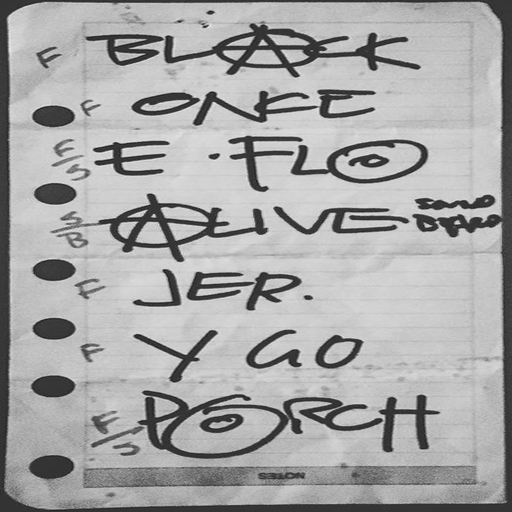 F BLACK
F ONCE
F/S E · FLO
S/B ALIVE
F JER.
F Y GO
F/S PORCH
NOTES